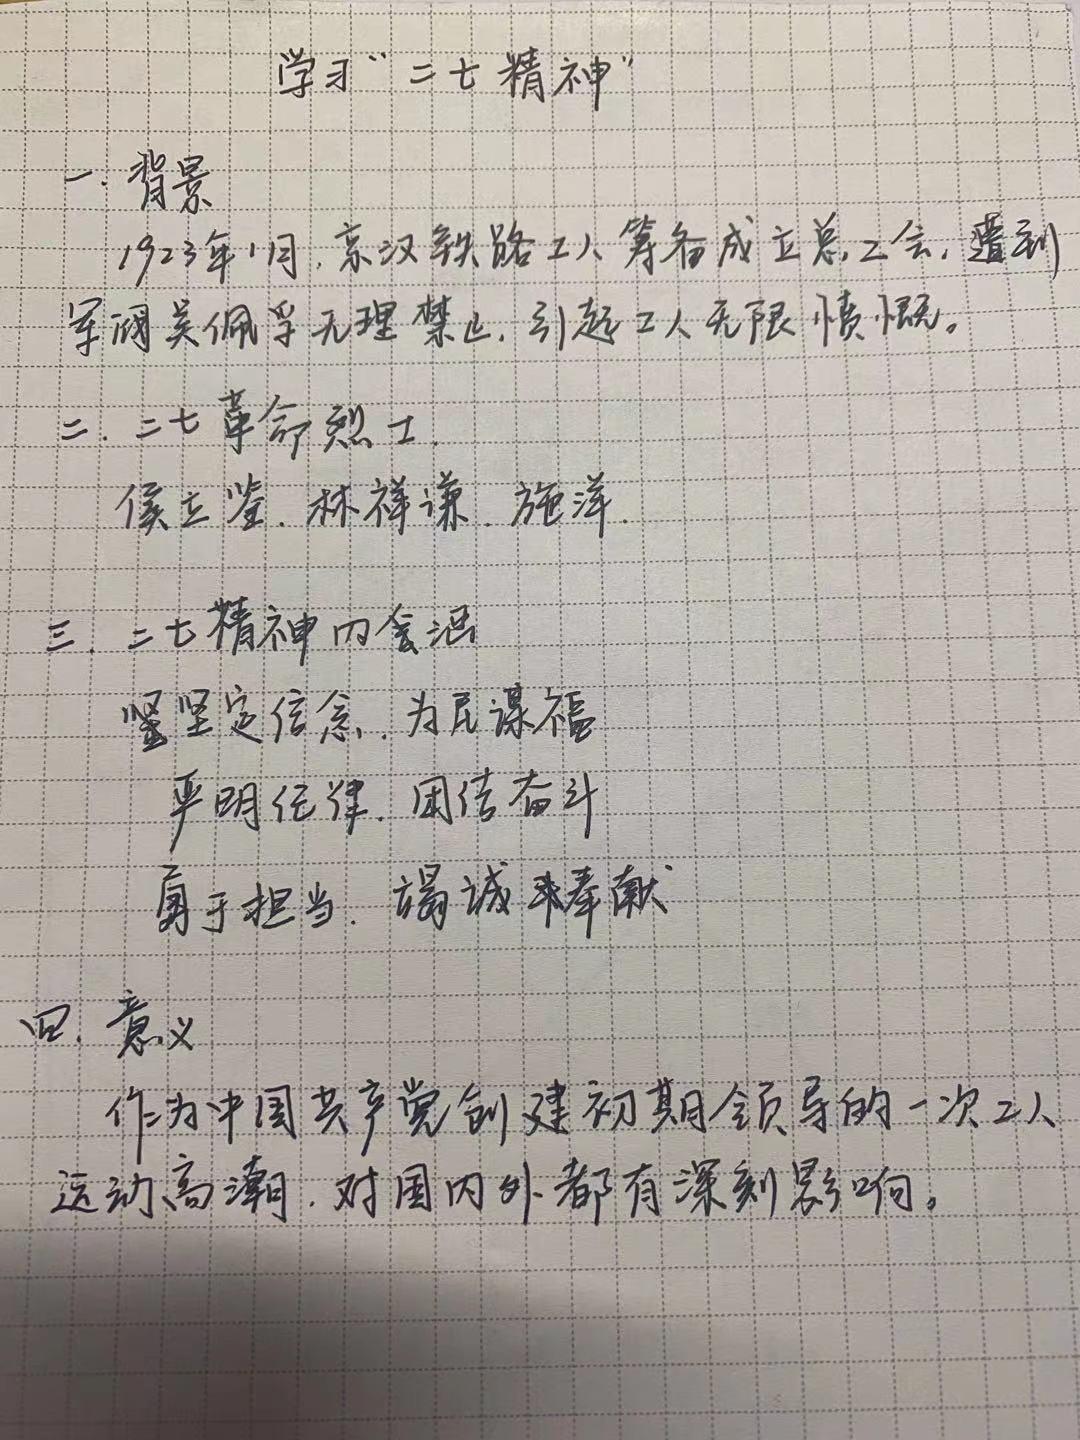 学习“二七精神”
一.背景
1923年1月,京汉铁路工人筹备成立总工会,遭到
军阀吴佩孚无理禁止,引起工人无限愤慨。
二.二七革命烈士.
侯立鉴.林祥谦.施洋.
三.二七精神内涵
坚定信念.为民谋福
严明纪律.团结奋斗
勇于担当.竭诚奉献
四.意义
作为中国共产党创建初期领导的一次工人
运动高潮.对国内外都有深刻影响。